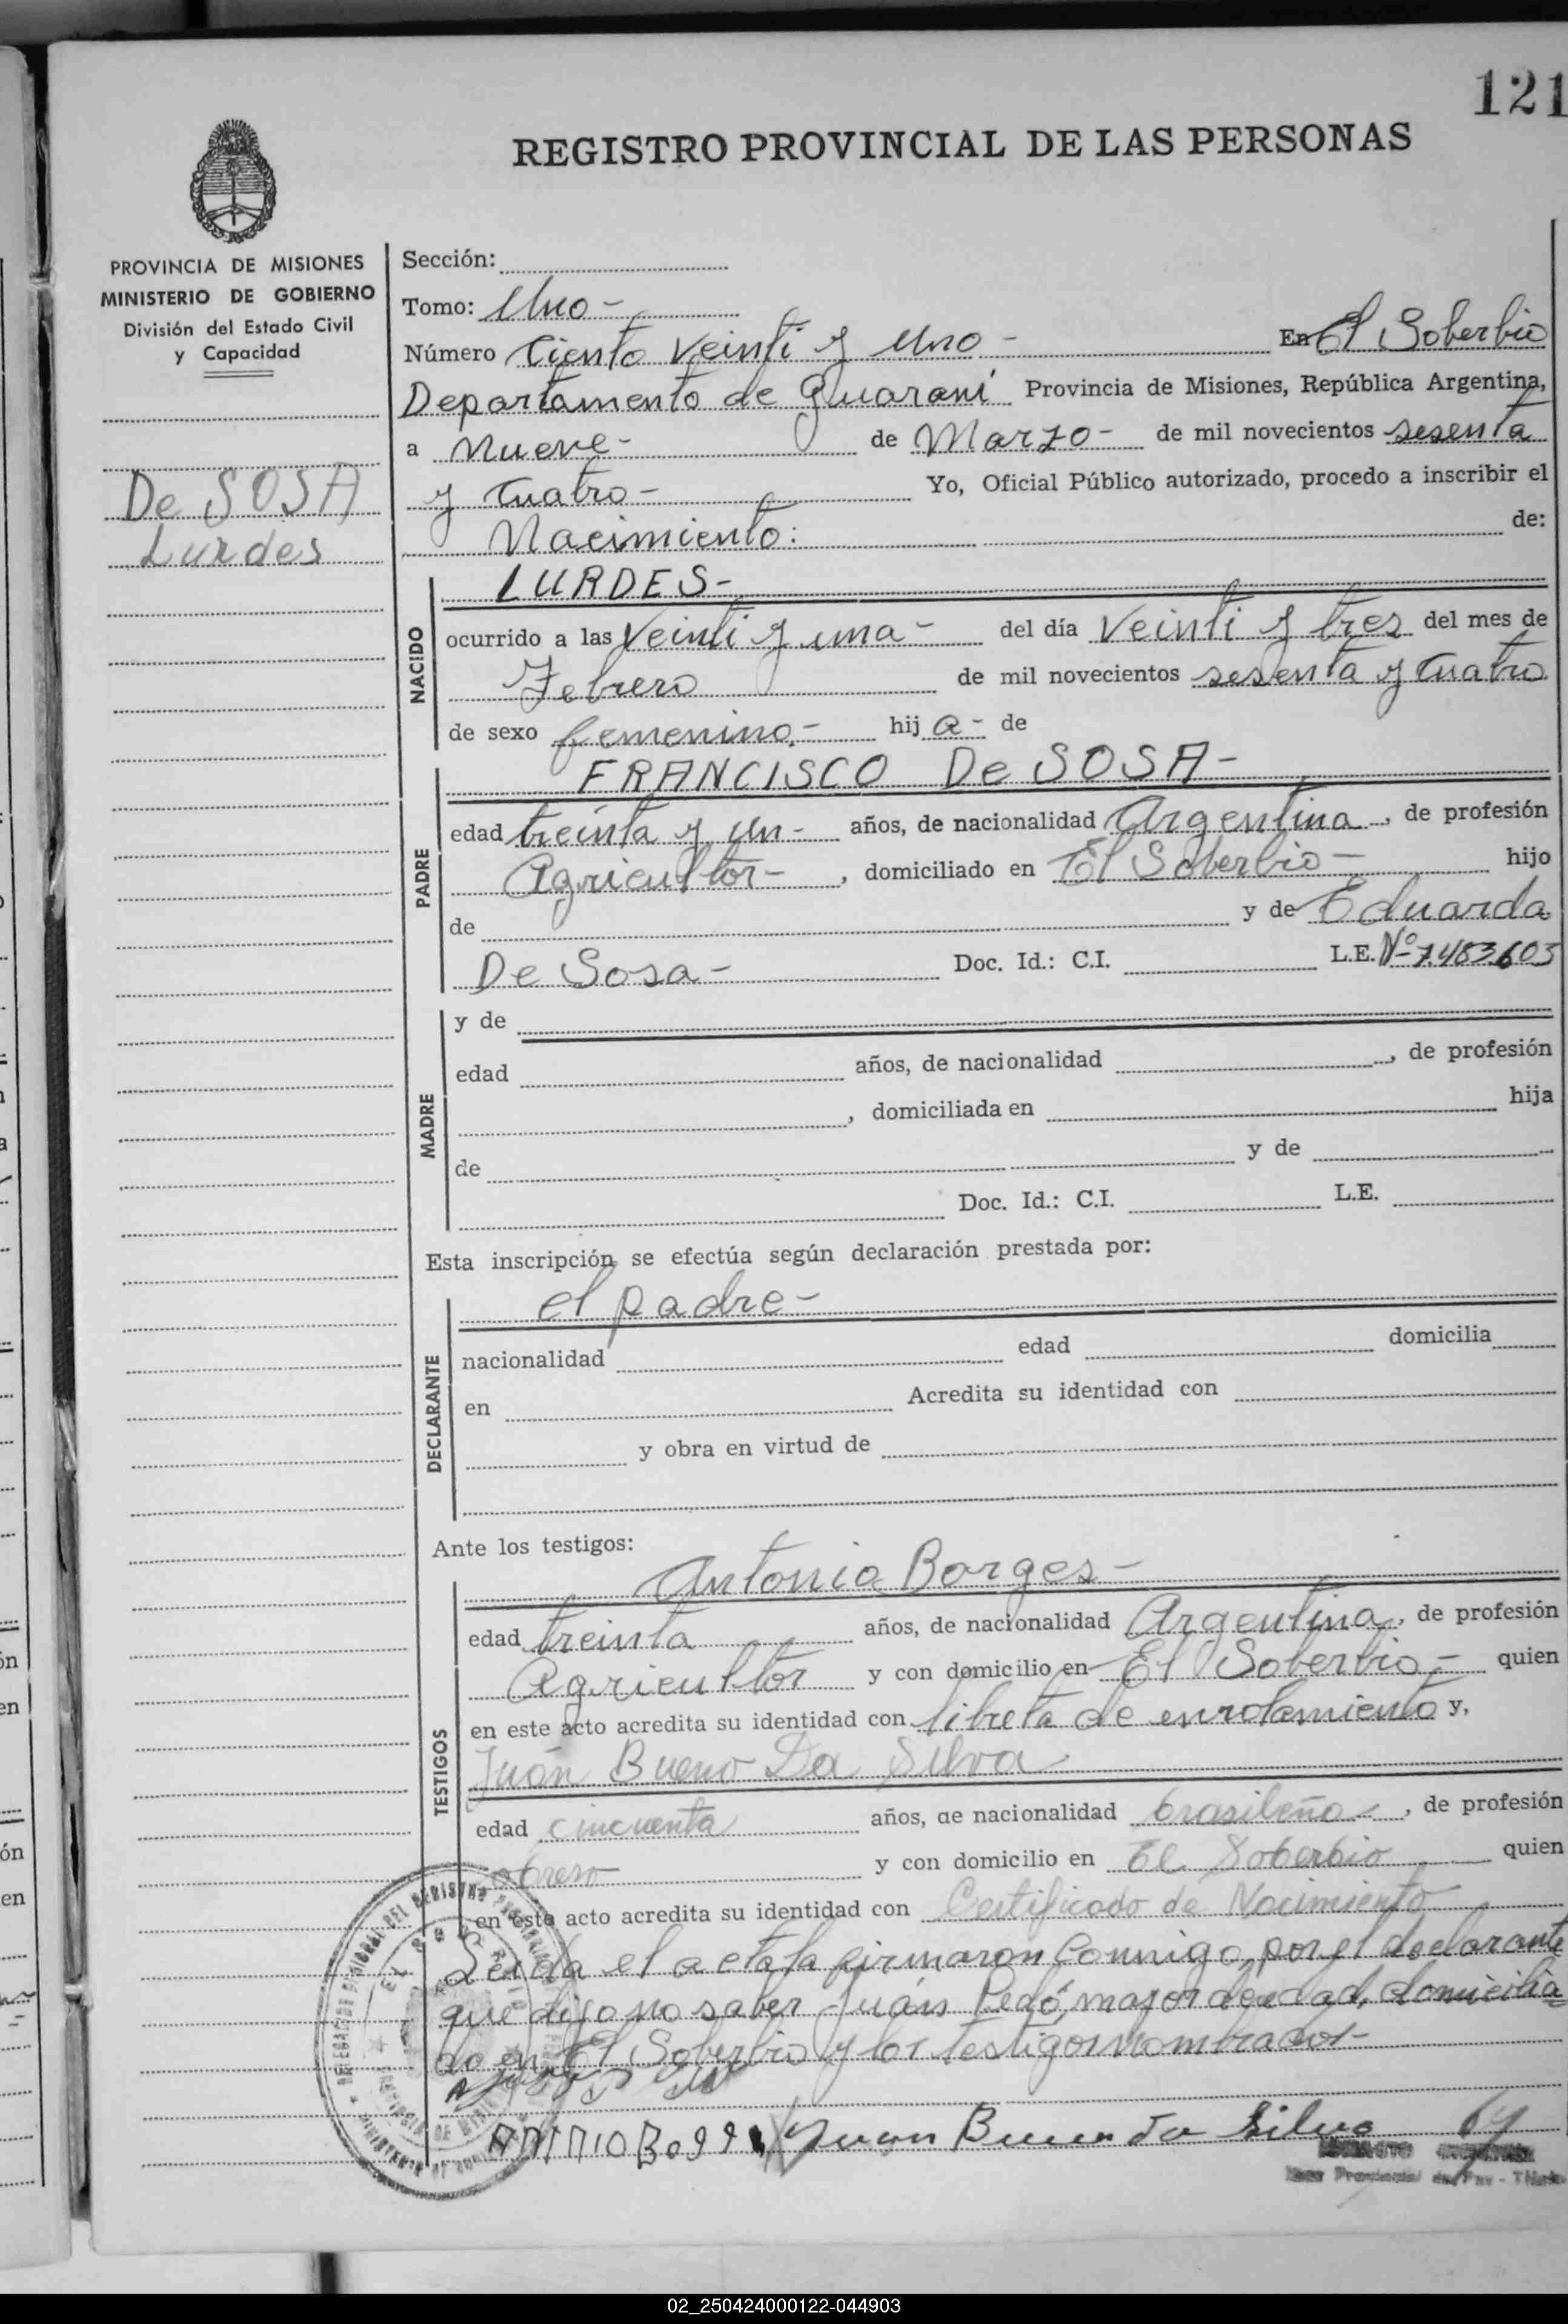 121
REGISTRO PROVINCIAL DE LAS PERSONAS
PROVINCIA DE MISIONES
MINISTERIO DE GOBIERNO
División del Estado Civil
y Capacidad
De SOSA
Lurdes
Sección:
Tomo: Uno-
Número Ciento Veinti y Uno - En El Soberbio
Departamento de Guaraní Provincia de Misiones, República Argentina,
a Nueve- de Marzo- de mil novecientos sesenta
y Cuatro- Yo, Oficial Público autorizado, procedo a inscribir el
Nacimiento: de:
NACIDO
LURDES-
ocurrido a las Veinti y una- del día Veinti y tres del mes de
Febrero de mil novecientos sesenta y Cuatro
de sexo femenino.- hij a- de
PADRE
FRANCISCO De SOSA-
edad treinta y un- años, de nacionalidad Argentina, de profesión
Agricultor-, domiciliado en El Soberbio- hijo
de y de Eduarda
De Sosa- Doc. Id.: C.I. L.E. Nº 7.483.603
MADRE
y de
edad años, de nacionalidad , de profesión
, domiciliada en hija
de y de
Doc. Id.: C.I. L.E.
Esta inscripción se efectúa según declaración prestada por:
DECLARANTE
el padre-
nacionalidad edad domicilia
en Acredita su identidad con
y obra en virtud de
Ante los testigos:
TESTIGOS
Antonio Borges-
edad treinta años, de nacionalidad Argentina, de profesión
Agricultor y con domicilio en El Soberbio.- quien
en este acto acredita su identidad con libreta de enrolamiento y,
Juán Bueno Da Silva
edad cincuenta años, de nacionalidad brasileña-, de profesión
obrero y con domicilio en El Soberbio quien
en este acto acredita su identidad con Certificado de Nacimiento
Leida el acta la firmaron Conmigo, por el declarante
que dijo no saber Juán Pedó, mayor de edad, domicilia=
do en El Soberbio y los testigos nombrados-
Juan Bueno da Silva
02_250424000122-044903